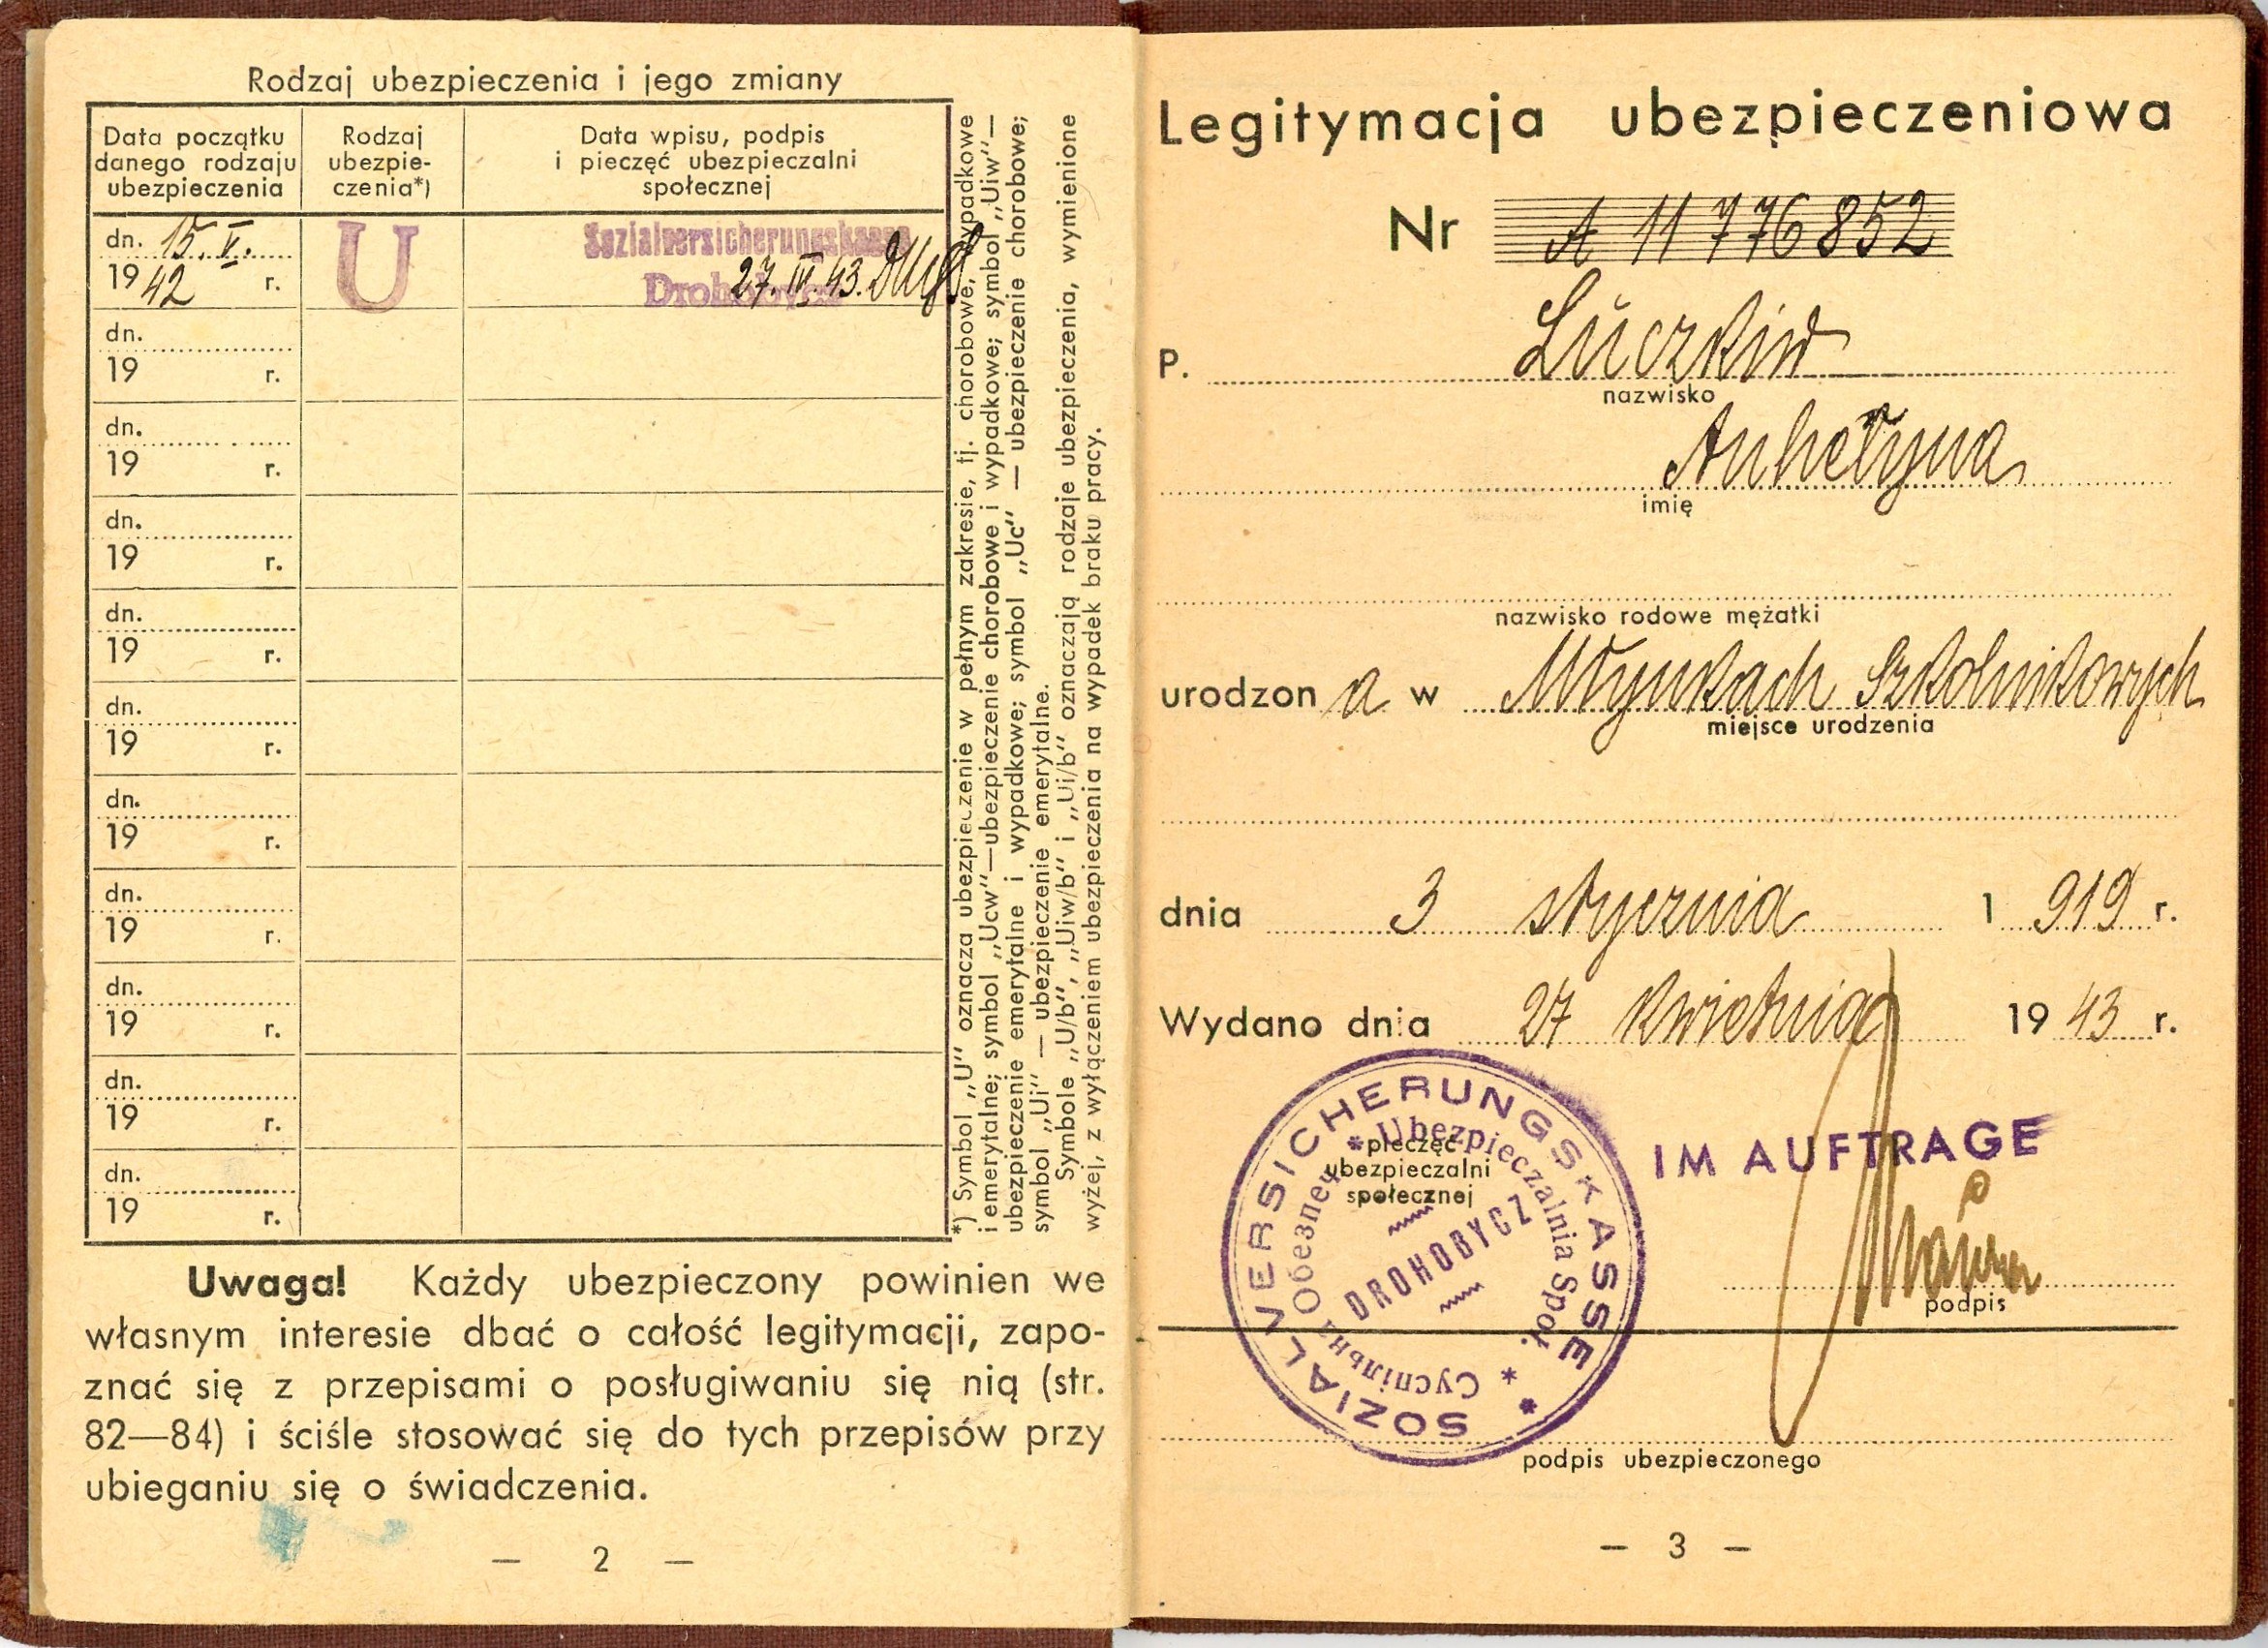 Rodzaj ubezpieczenia i jego zmiany
Data początku
danego rodzaju
ubezpieczenia
Rodzaj
ubezpie-
czenia*)
Data wpisu, podpis
i pieczęć ubezpieczalni
społecznej
dn. 15. V.
19 42 r.
U
Sozialversicherungskasse
Drohobycz
27. IV. 43.
dn.
19 r.
dn.
19 r.
dn.
19 r.
dn.
19 r.
dn.
19 r.
dn.
19 r.
dn.
19 r.
dn.
19 r.
dn.
19 r.
dn.
19 r.
*) Symbol „U" oznacza ubezpieczenie w pełnym zakresie, tj. chorobowe, wypadkowe
i emerytalne; symbol „Ucw"—ubezpieczenie chorobowe i wypadkowe; symbol „Uiw"—
ubezpieczenie emerytalne i wypadkowe; symbol „Uc" — ubezpieczenie chorobowe;
symbol „Ui" — ubezpieczenie emerytalne.
Symbole „U/b", „Uiw/b" i „Ui/b" oznaczają rodzaje ubezpieczenia, wymienione
wyżej, z wyłączeniem ubezpieczenia na wypadek braku pracy.
Uwaga! Każdy ubezpieczony powinien we
własnym interesie dbać o całość legitymacji, zapo-
znać się z przepisami o posługiwaniu się nią (str.
82—84) i ściśle stosować się do tych przepisów przy
ubieganiu się o świadczenia.
— 2 —
Legitymacja ubezpieczeniowa
Nr A 11 776852
P. Łuczkiw
nazwisko
Anhełyna
imię
nazwisko rodowe mężatki
urodzon a w Młynkach Szkolnikowych
miejsce urodzenia
dnia 3 stycznia 1 919 r.
Wydano dnia 27 kwietnia 19 43 r.
pieczęć
ubezpieczalni
społecznej
SOZIALVERSICHERUNGSKASSE *
* Ubezpieczalnia Społ. * Суспільна Обезпеч.
DROHOBYCZ
IM AUFTRAGE
podpis
podpis ubezpieczonego
— 3 —